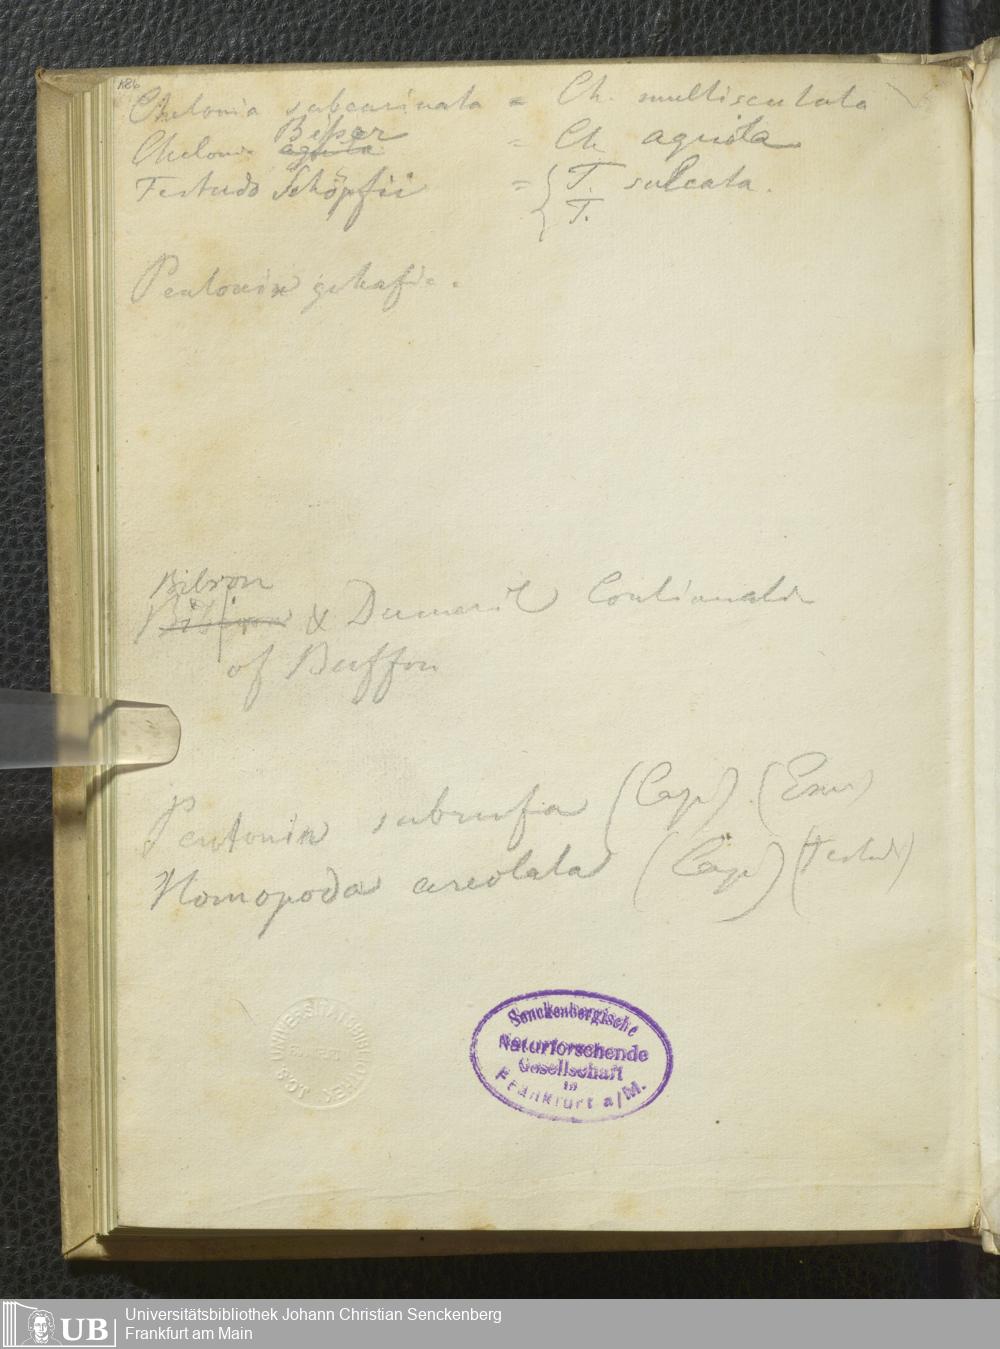 186
Chelonia subcarinata = Ch. multiscutata
Bissar
Cheloni aguta = Ch aguta
Testudo Schöpfii = { T. sulcata.
T.
Pentonix gehafie.
Bibron
& Dumeril Continuatio
of Buffon
Pentonix subrufa (Cap) (Emy)
Homopoda areolata (Cap) (Testud)
UNIVERSITÄTSBIBLIOTHEK J.C.S.
Senckenbergische
Naturforschende
Gesellschaft
in
Frankfurt a/M.
UB
Universitätsbibliothek Johann Christian Senckenberg
Frankfurt am Main